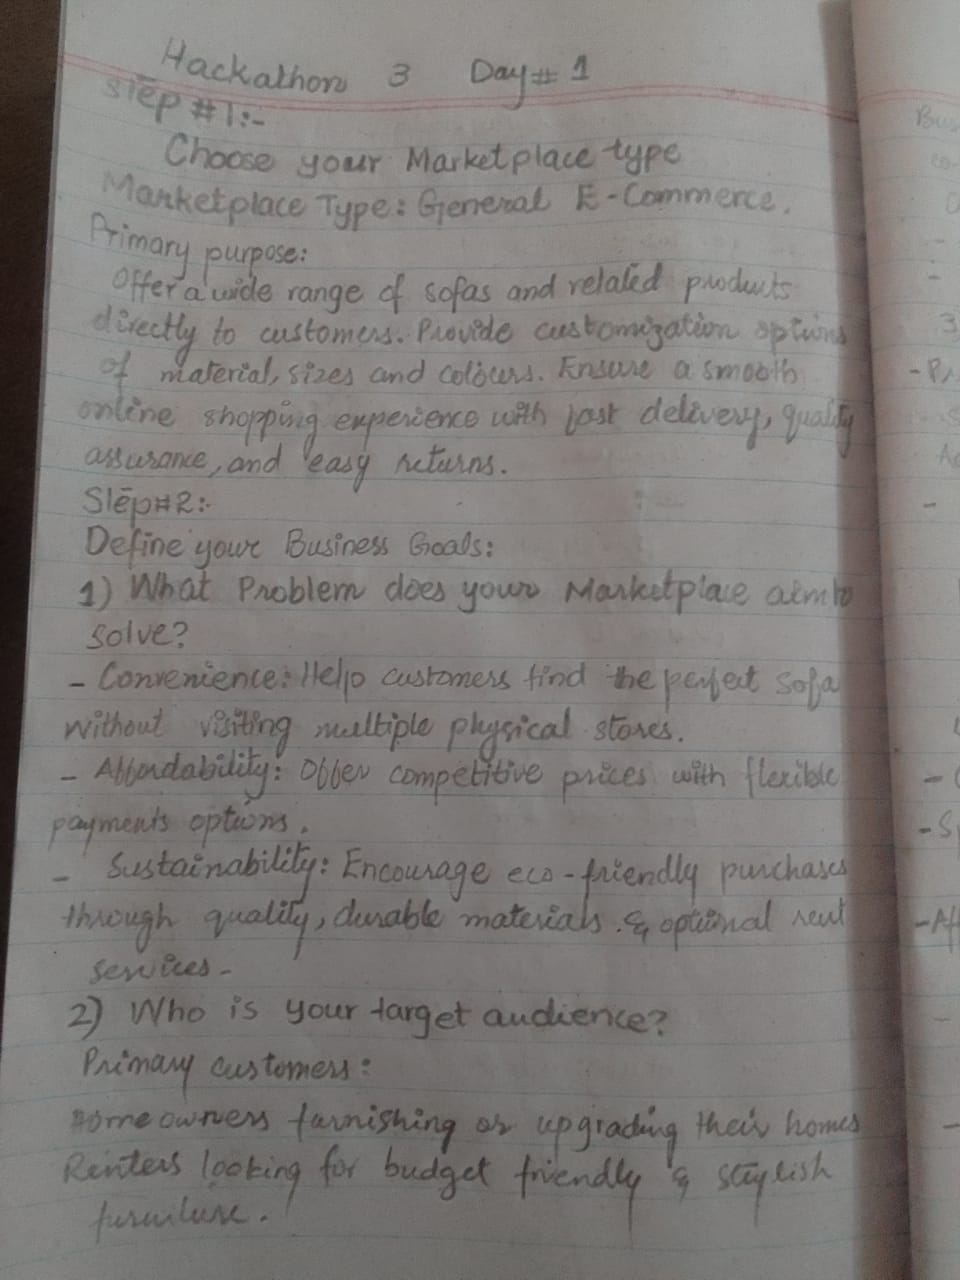 Hackathon 3 Day# 1
Step #1:-
Choose your Marketplace type
Marketplace Type: General E-Commerce.
Primary purpose:
Offer a wide range of sofas and related products
directly to customers. Provide customization options
of material, sizes and colours. Ensure a smooth
online shopping experience with fast delivery, quality
assurance, and easy returns.
Step#2:-
Define your Business Goals:
1) What Problem does your Marketplace aim to
solve?
- Convenience: Help customers find the perfect sofa
without visiting multiple physical stores.
- Affordability: Offer competitive prices with flexible
payments options.
- Sustainability: Encourage eco-friendly purchases
through quality, durable materials. & optional rent
services-
2) Who is your target audience?
Primary customers:
Home owners furnishing or upgrading their homes
Renters looking for budget friendly & stylish
furniture.